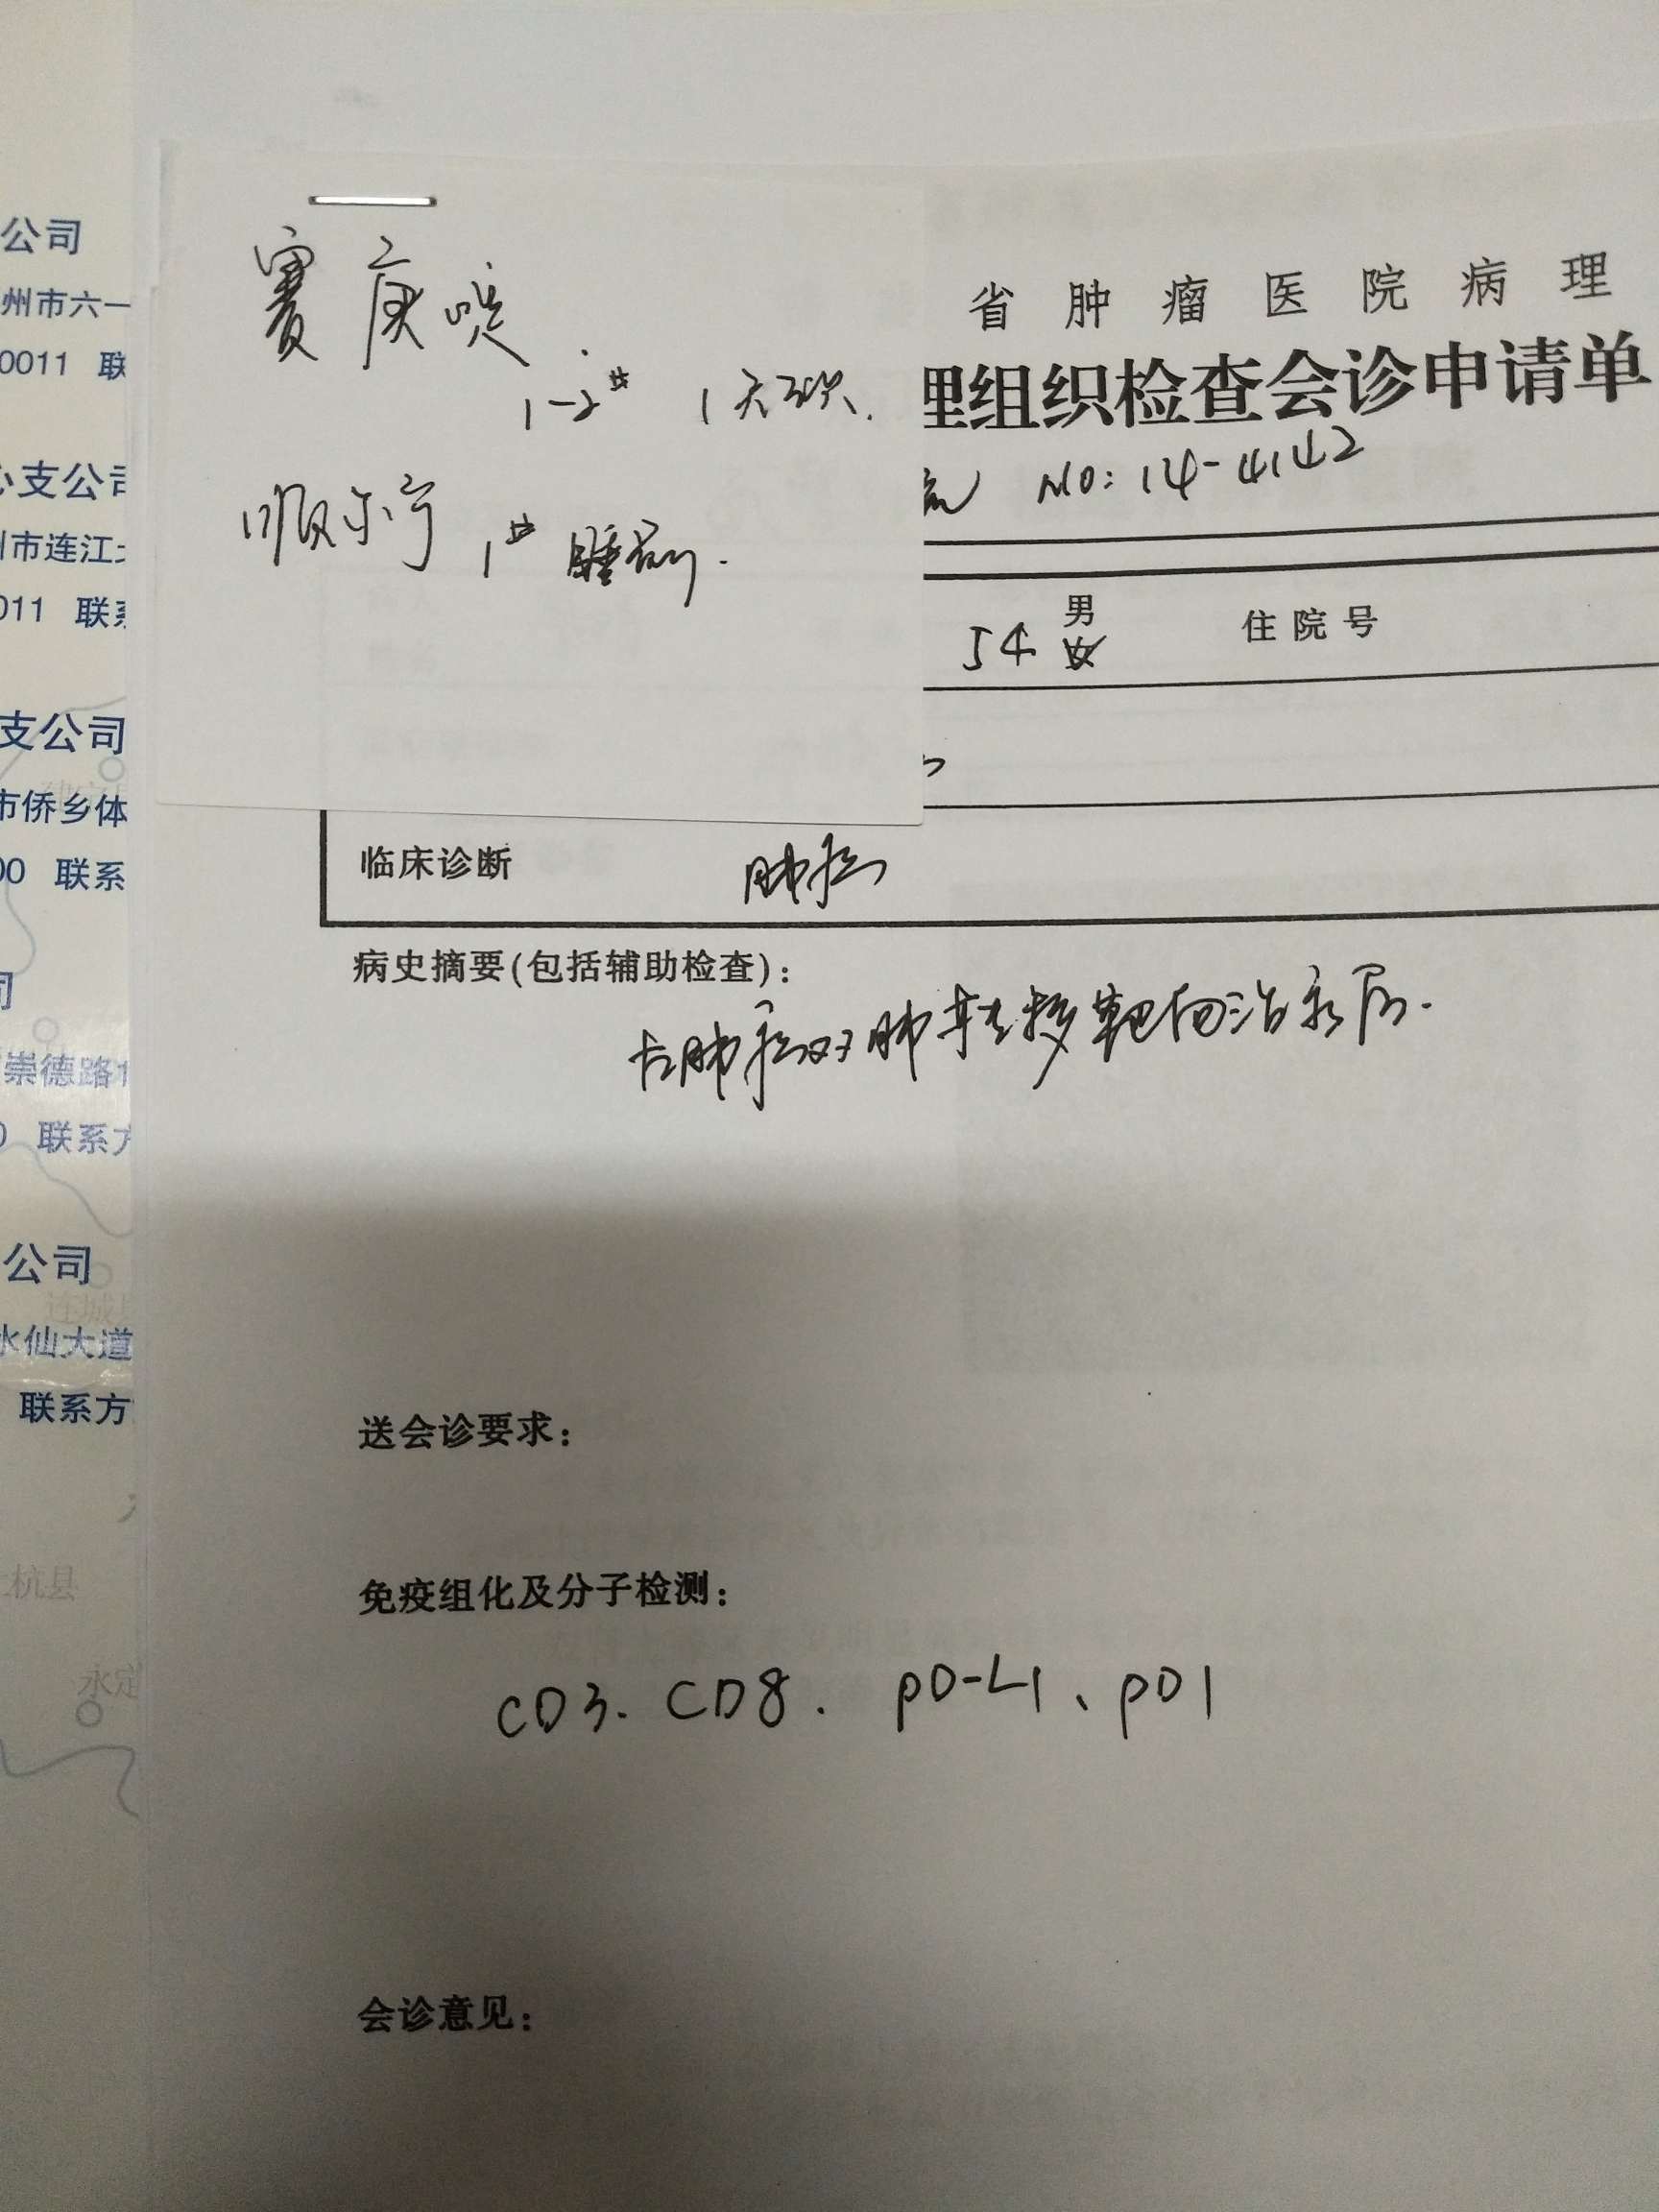 公司
州市六一
0011 联
心支公司
州市连江
011 联系
支公司
市侨乡体
00 联系
司
崇德路1
0 联系方
公司
连城县
水仙大道
联系方
上杭县
永定
赛庚啶
1-2# 1天3次.
顺尔宁 1# 睡前.
省肿瘤医院病理
理组织检查会诊申请单
NO: 14-4142
54 男 女 住院号
临床诊断 肺癌
病史摘要(包括辅助检查):
左肺癌双肺转移靶向治疗后.
送会诊要求:
免疫组化及分子检测:
CD3. CD8. PD-L1、PD1
会诊意见: